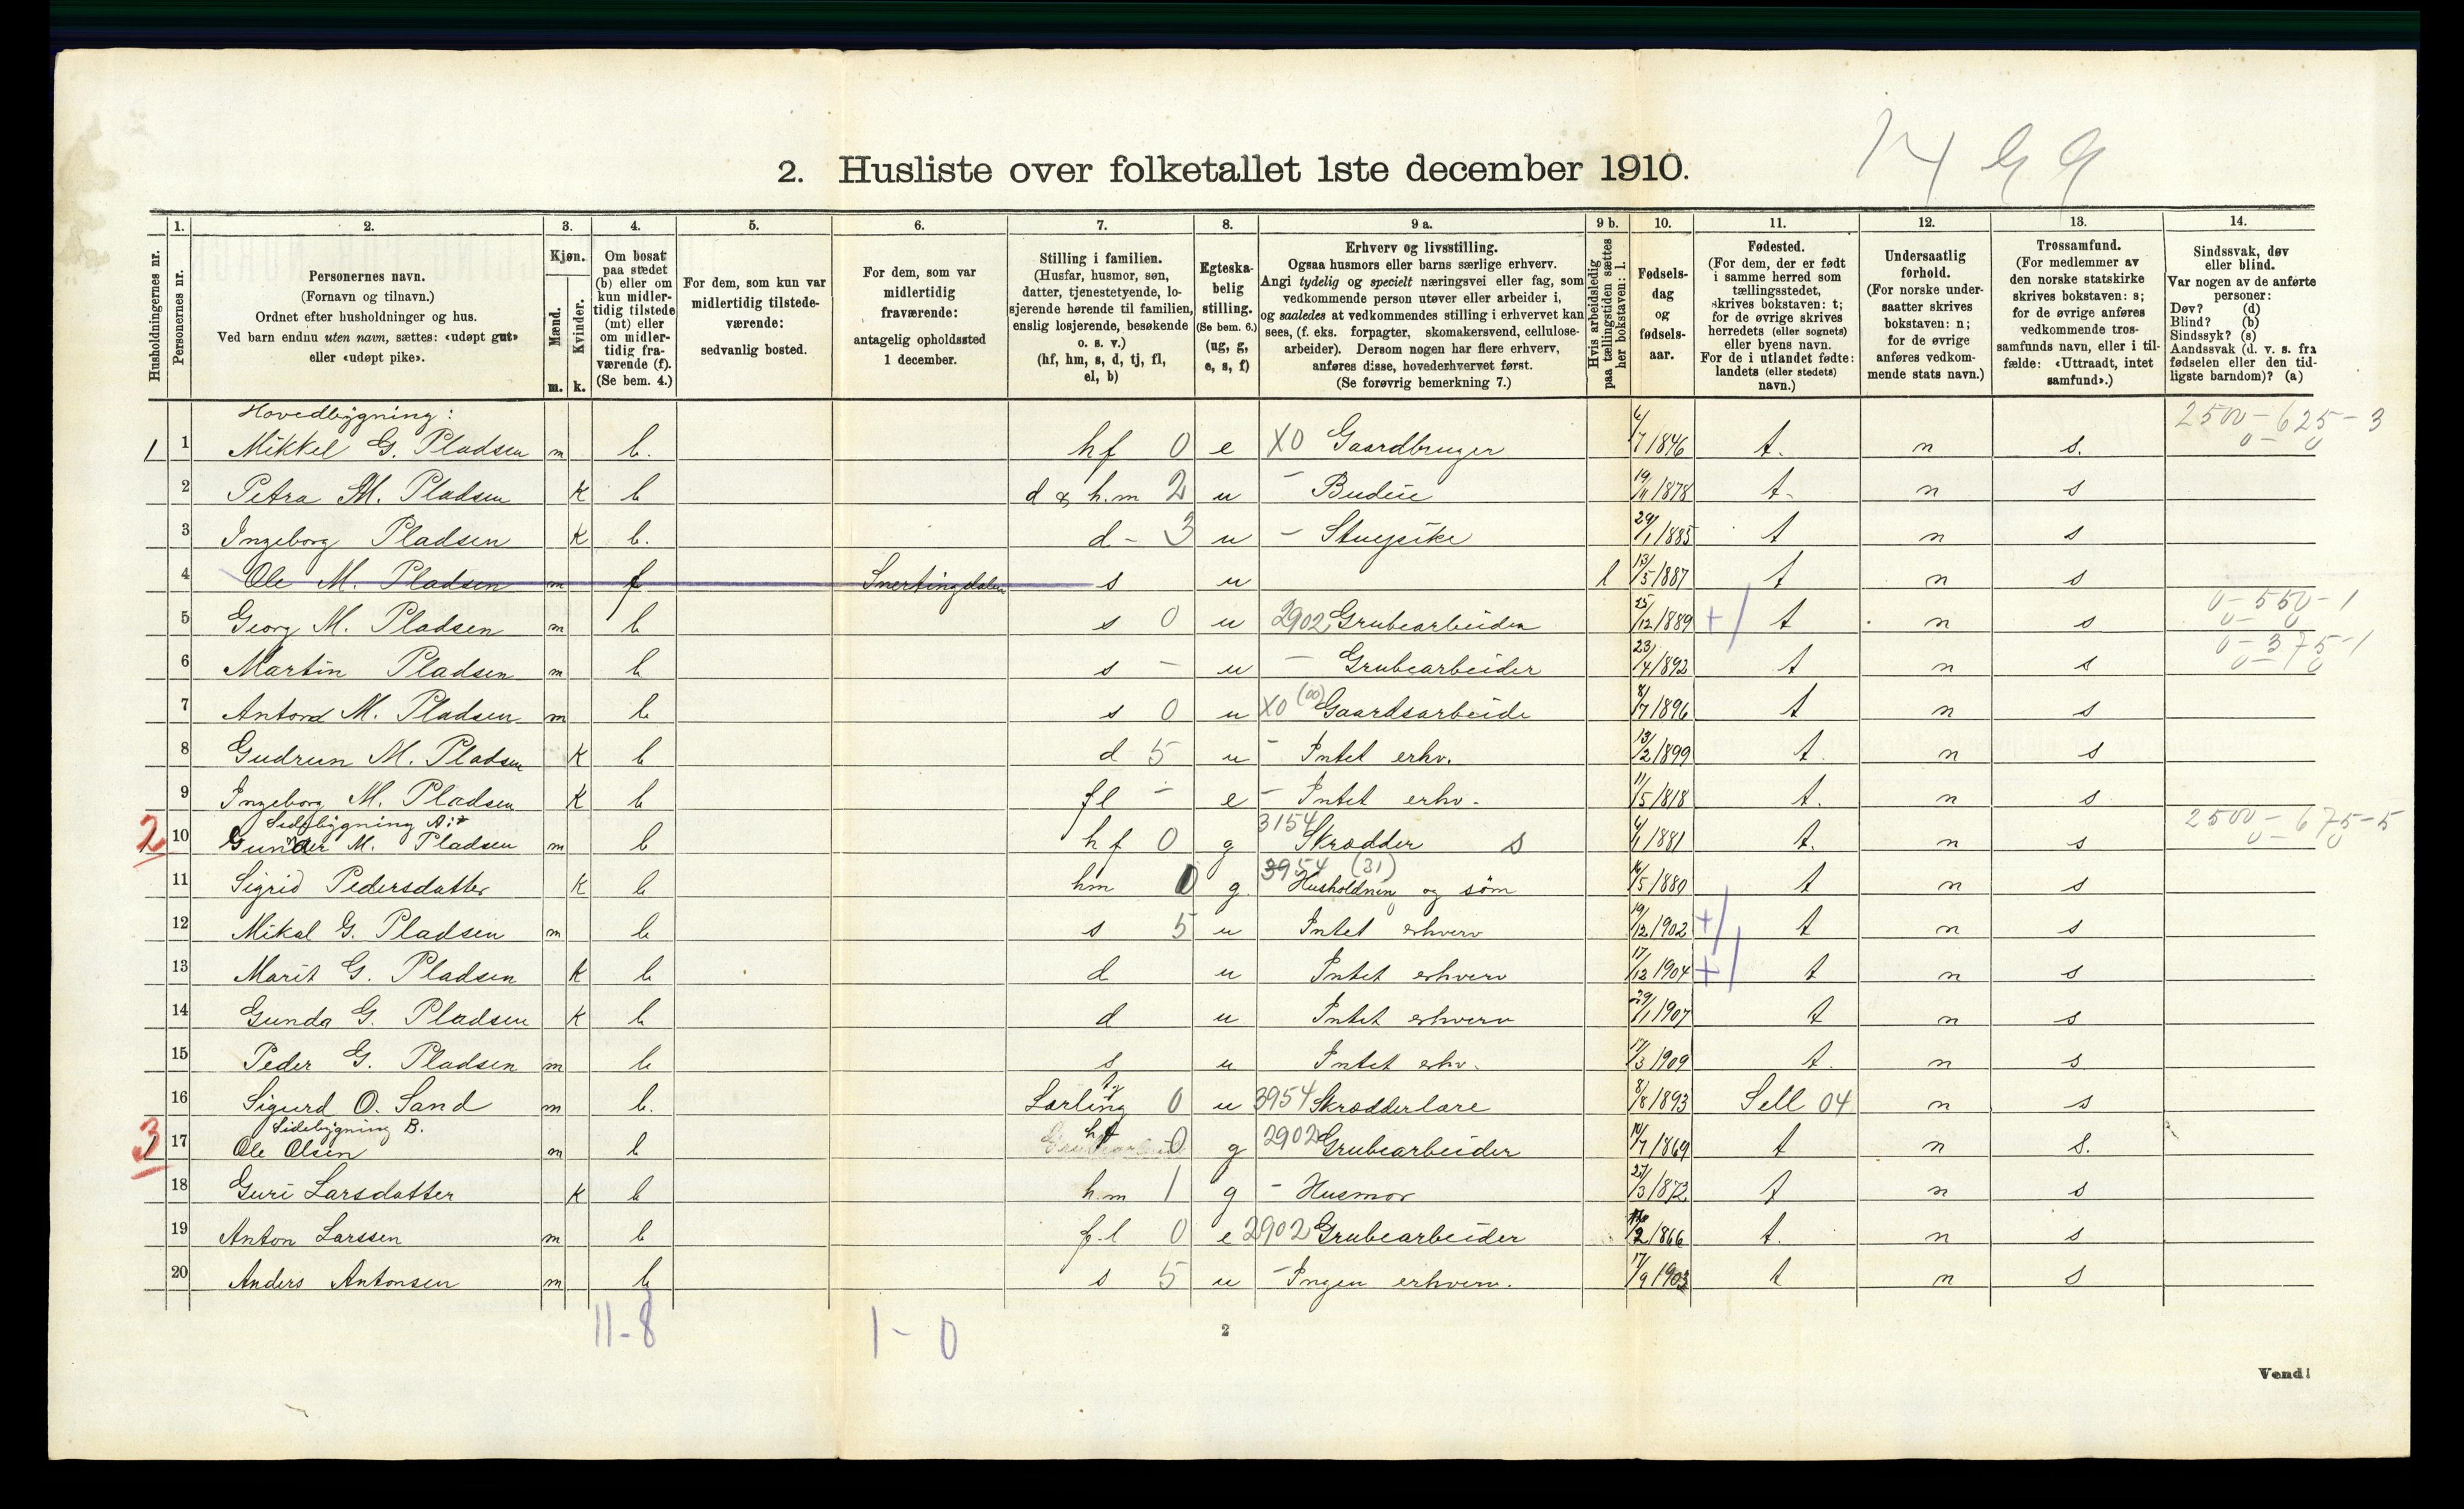 2. Husliste over folketallet 1ste december 1910.
1. 2. 3. 4. 5. 6. 7. 8. 9 a. 9 b. 10. 11. 12. 13. 14.
Husholdningernes nr.
Personernes nr.
Personernes navn.
(Fornavn og tilnavn.)
Ordnet efter husholdninger og hus.
Ved barn endnu uten navn, sættes: «udøpt gut»
eller «udøpt pike».
Kjøn.
Mænd. m.
Kvinder. k.
Om bosat
paa stedet
(b) eller om
kun midler-
tidig tilstede
(mt) eller
om midler-
tidig fra-
værende (f).
(Se bem. 4.)
For dem, som kun var
midlertidig tilstede-
værende:
sedvanlig bosted.
For dem, som var
midlertidig
fraværende:
antagelig opholdssted
1 december.
Stilling i familien.
(Husfar, husmor, søn,
datter, tjenestetyende, lo-
sjerende hørende til familien,
enslig losjerende, besøkende
o. s. v.)
(hf, hm, s, d, tj, fl,
el, b)
Egteska-
belig
stilling.
(Se bem. 6.)
(ug, g,
e, s, f)
Erhverv og livsstilling.
Ogsaa husmors eller barns særlige erhverv.
Angi tydelig og specielt næringsvei eller fag, som
vedkommende person utøver eller arbeider i,
og saaledes at vedkommendes stilling i erhvervet kan
sees, (f. eks. forpagter, skomakersvend, cellulose-
arbeider). Dersom nogen har flere erhverv,
anføres disse, hovederhvervet først.
(Se forøvrig bemerkning 7.)
Hvis arbeidsledig
paa tællingstiden sættes
her bokstaven: l.
Fødsels-
dag
og
fødsels-
aar.
Fødested.
(For dem, der er født
i samme herred som
tællingsstedet,
skrives bokstaven: t;
for de øvrige skrives
herredets (eller sognets)
eller byens navn.
For de i utlandet fødte:
landets (eller stedets)
navn.)
Undersaatlig
forhold.
(For norske under-
saatter skrives
bokstaven: n;
for de øvrige
anføres vedkom-
mende stats navn.)
Trossamfund.
(For medlemmer av
den norske statskirke
skrives bokstaven: s;
for de øvrige anføres
vedkommende tros-
samfunds navn, eller i til-
fælde: «Uttraadt, intet
samfund».)
Sindssvak, døv
eller blind.
Var nogen av de anførte
personer:
Døv? (d)
Blind? (b)
Sindssyk? (s)
Aandssvak (d. v. s. fra
fødselen eller den tid-
ligste barndom)? (a)
Hovedbygning:
1 1 Mikkel G. Pladsen m b. hf 0 e X0 Gaardbruger 6/7 1846 t. n s. 2500 - 625 - 3
2 Petra M. Pladsen K b d & h.m 2 u - Budeie 19/11 1878 t- n s
3 Ingeborg Pladsen K b. d - 3 u - Stuepike 29/1 1885 t n s
4 Ole M. Pladsen m f Snertingdalen s u l 13/5 1887 t n s
5 Georg M. Pladsen m b s 0 u 2902 Grubearbeider 25/12 1889 t n s 0 - 550 - 1
6 Martin Pladsen m b s - u - Grubearbeider 23/4 1892 t n s 0 - 375 - 1
7 Anton M. Pladsen m b s 0 u X0 (00) Gaardsarbeide 8/7 1896 t n s
8 Gudrun M. Pladsen K b d 5 u - Intet erhv. 13/2 1899 t. n s
9 Ingeborg M. Pladsen K b fl - e - Intet erhv. 11/5 1818 t. n s
Sidebygning A:
2 10 Gunder M. Pladsen m b hf 0 g 3154 Skrædder s 1881 t. n s 2500 - 675 - 5
11 Sigrid Pedersdatter K b hm 0 g. 3954 (31) Husholdnin og søm 16/5 1880 t n s
12 Mikal G. Pladsen m b s 5 u Intet erhverv 19/12 1902 t n s
13 Marit G. Pladsen K b d u Intet erhverv 17/12 1904 t n s
14 Gunda G. Pladsen K b d u Intet erhverv 29/1 1907 t n s
15 Peder G. Pladsen m b s u Intet erhv. 17/3 1909 t. n s
16 Sigurd O. Sand m b. Lærling 0 u 3954 Skrædderlære 8/8 1893 Sell 04 n s
Sidebygning B.
3 17 Ole Olsen m b hf 0 g 2902 Grubearbeider 10/7 1869 t n s.
18 Guri Larsdatter K b h.m 1 g - Husmor 27/3 1872 t n s
19 Anton Larssen m b f.l 0 e 2902 Grubearbeider 1866 t. n s
20 Anders Antonsen m b s 5 u - Ingen erhverv. 17/9 1903 t n s
11-8 1-0
2
Vend!